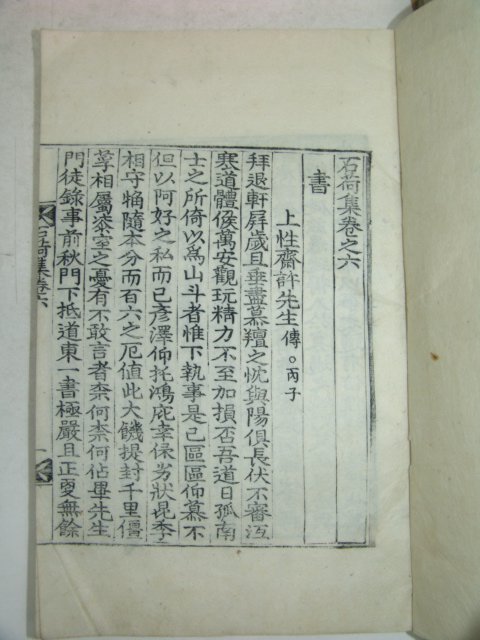 石荷集卷之六
書
上性齋許先生傳○丙子
拜退軒屛歲且垂盡慕羶之忱與陽俱長伏不審沍
寒道體候萬安觀玩精力不至加損否吾道日孤南
士之所倚以爲山斗者惟下執事是已區區仰慕不
但以阿好之私而已彦澤仰托鴻庇幸保劣狀昆季
相守焰隨本分而百六之厄値此大饑提封千里僵
莩相屬漆室之憂有不敢言者柰何柰何佔畢先生
門徒錄事前秋門下抵道東一書極嚴且正更無餘
石荷集卷六
一